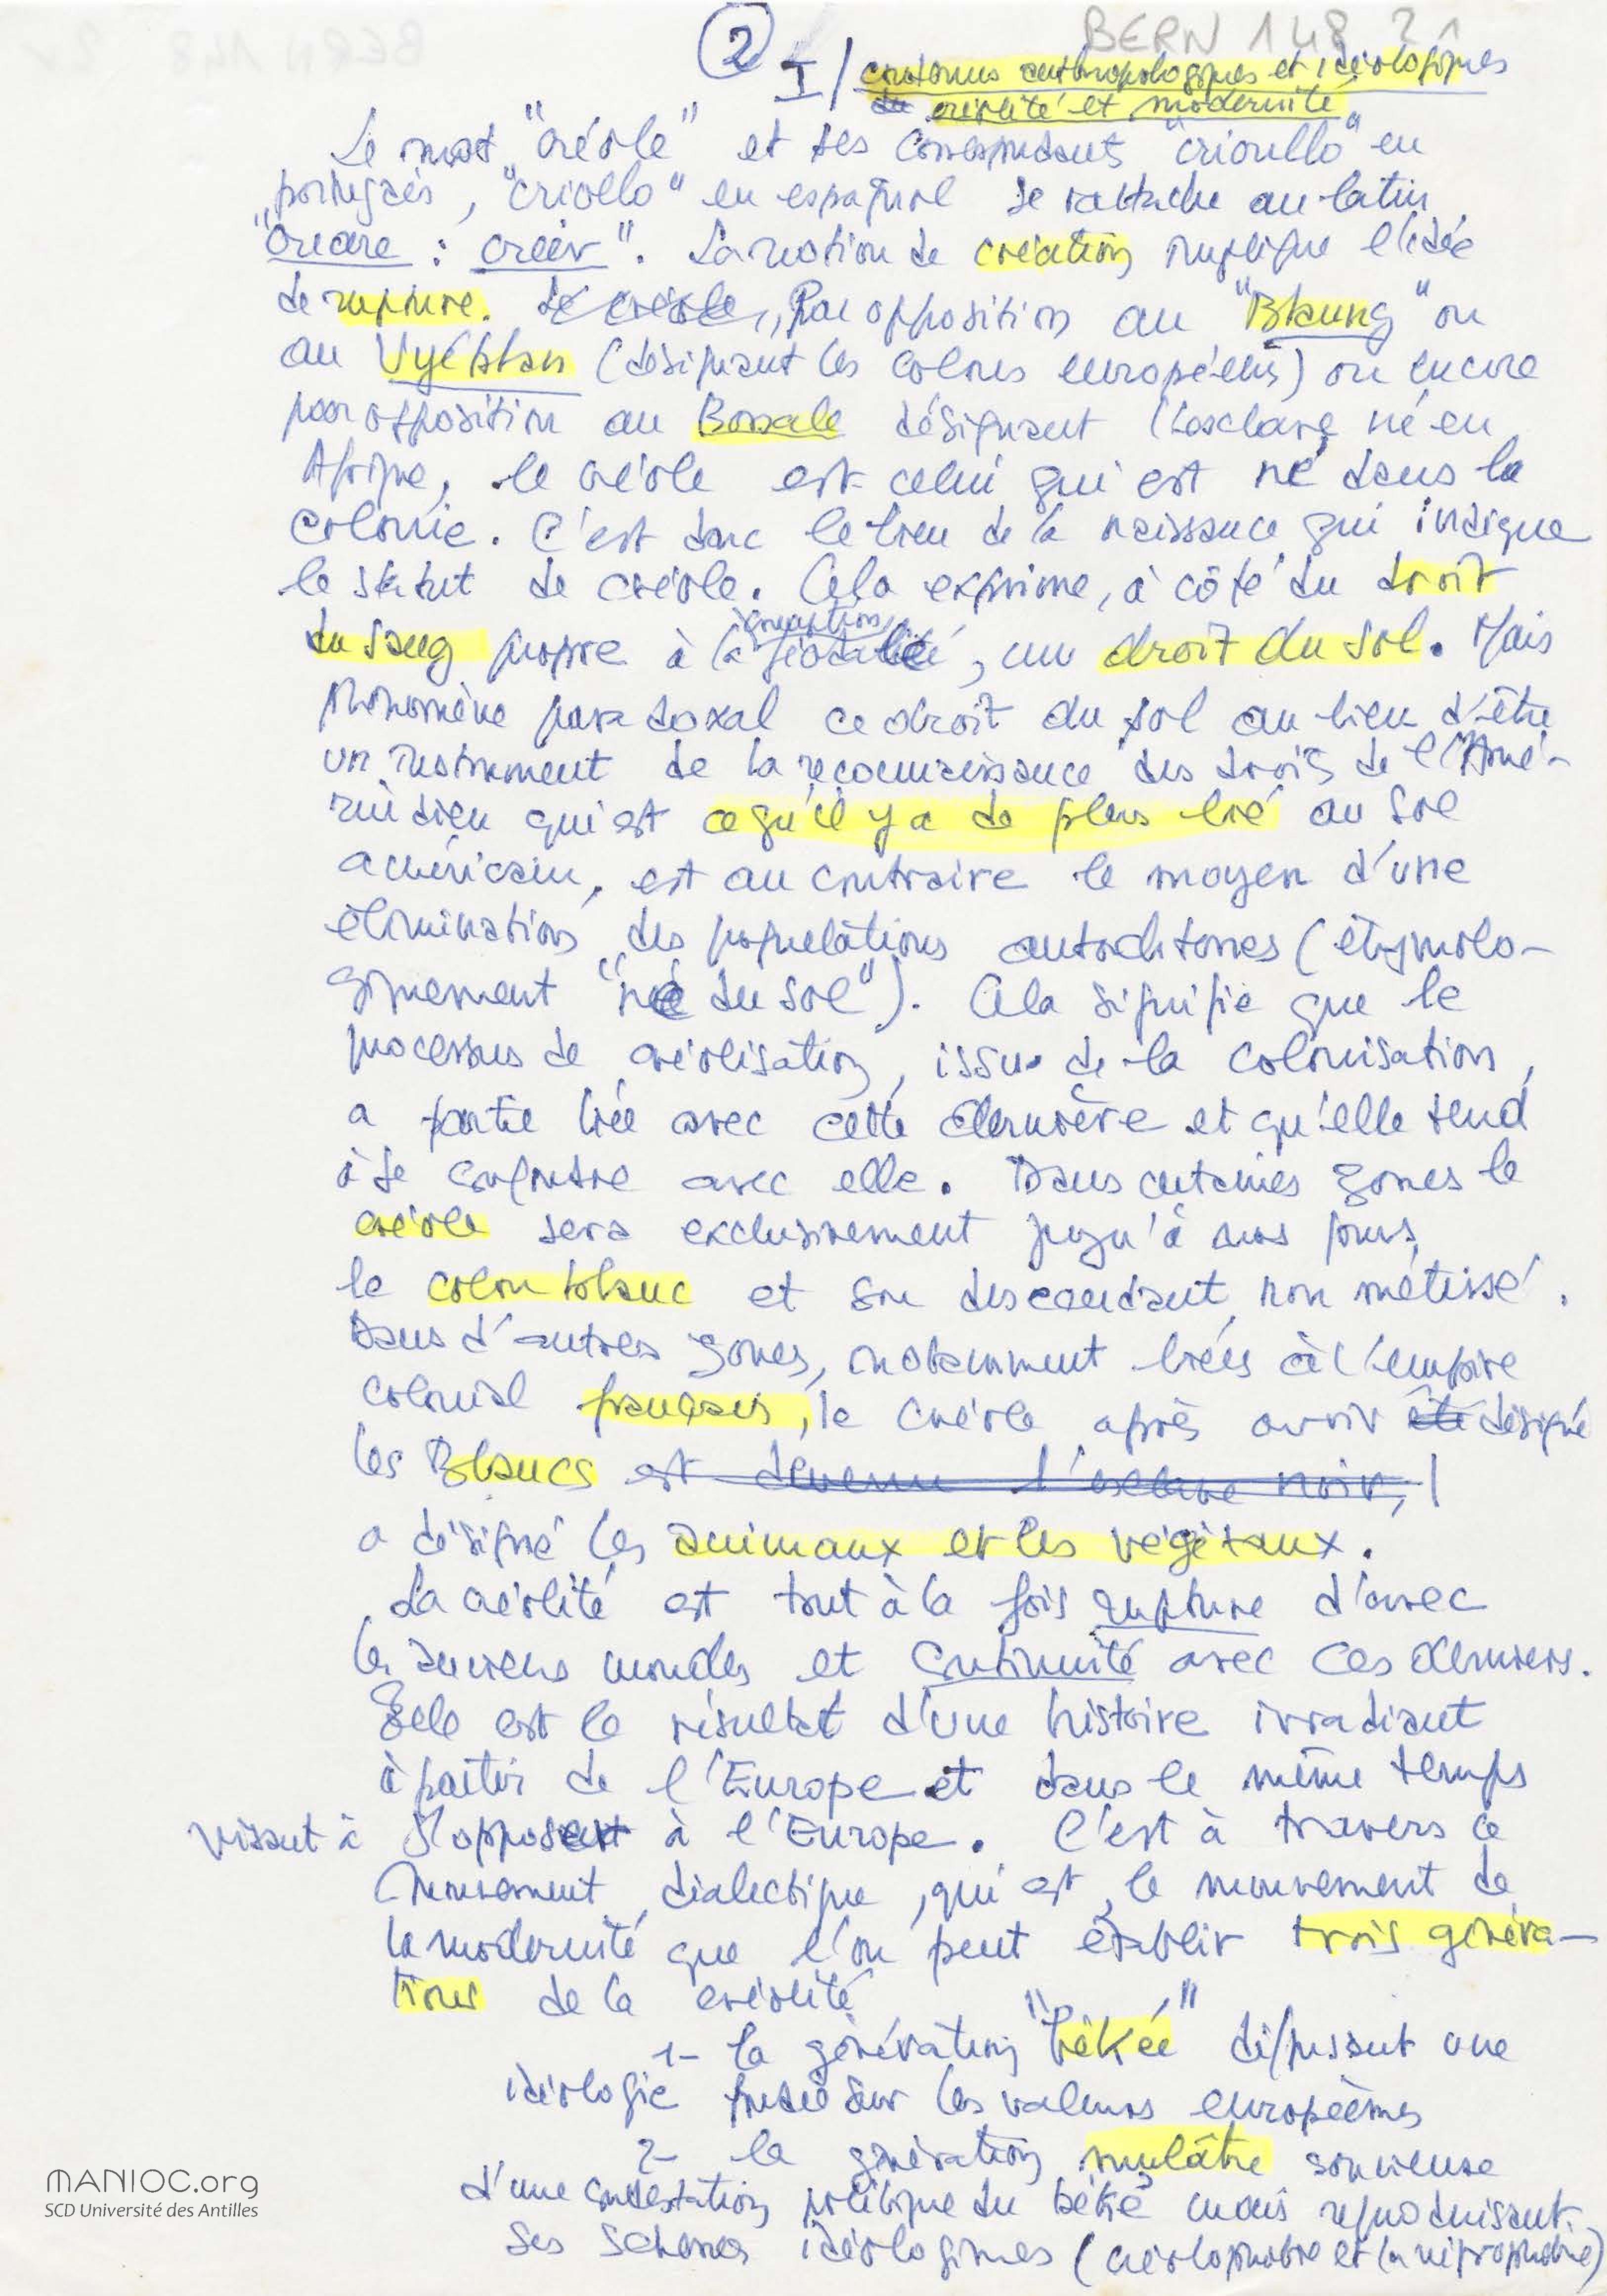 BERN 148 21
2
I/ contenus anthropologiques et idéologiques
créolité et modernité
Le mot "créole" et ses correspondants "crioullo" en
portugais, "criollo" en espagnol se rattache au latin
"creare : créer". La notion de création implique l'idée
de rupture. Le créole, Par opposition au "Blanng" ou
au Vyéblan (désignant les colons européens) ou encore
par opposition au Bossale désignant l'esclave né en
Afrique, le créole est celui qui est né dans la
colonie. C'est donc le lieu de la naissance qui indique
le statut de créole. Cela exprime, à côté du droit
conception
du sang propre à la féodalité, un droit du sol. Mais
phénomène paradoxal ce droit du sol au lieu d'être
un instrument de la reconnaissance des droits de l'Amé-
rindien qui est ce qu'il y a de plus lié au sol
américain, est au contraire le moyen d'une
élimination des populations autochtones (étymolo-
giquement "né du sol"). Cela signifie que le
processus de créolisation, issu de la colonisation,
a partie liée avec cette dernière et qu'elle tend
à se confondre avec elle. Dans certaines zones le
créole sera exclusivement jusqu'à nos jours
le colon blanc et son descendant non métissé.
Dans d'autres zones, notamment liées à l'empire
colonial français, le créole après avoir été désigné
les Blancs est devenu l'esclave noir,
a désigné les animaux et les végétaux.
La créolité est tout à la fois rupture d'avec
les anciens mondes et continuité avec ces derniers.
Elle est le résultat d'une histoire irradiant
à partir de l'Europe et dans le même temps
visant à s'opposer à l'Europe. C'est à travers ce
mouvement dialectique, qui est le mouvement de
la modernité que l'on peut établir trois généra-
tions de la créolité
1- la génération "békée" diffusant une
idéologie fondée sur les valeurs européennes
2- la génération mulâtre soucieuse
d'une contestation politique du béké mais reproduisant
ses schémas idéologiques (créolophobie et la négrophobie)
MANIOC.org
SCD Université des Antilles